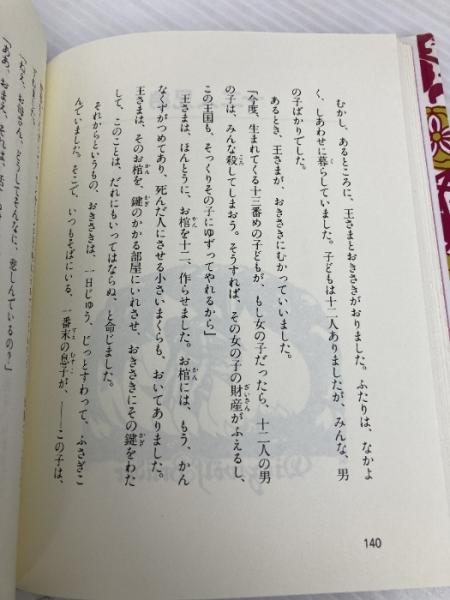 むかし、あるところに、王さまとおきさきがおりました。ふたりは、なかよ
く、しあわせに暮らしていました。子どもは十二人ありましたが、みんな、男
の子ばかりでした。
あるとき、王さまが、おきさきにむかっていいました。
「今度、生まれてくる十三番めの子どもが、もし女の子だったら、十二人の男
の子は、みんな殺してしまおう。そうすれば、その女の子の財産がふえるし、
この王国も、そっくりその子にゆずってやれるから」
王さまは、ほんとうに、お棺を十二、作らせました。お棺には、もう、かん
なくずがつめてあり、死んだ人にさせる小さいまくらも、おいてありました。
王さまは、そのお棺を、鍵のかかる部屋にいれさせ、おきさきにその鍵をわた
して、このことは、だれにもいってはならぬ、と命じました。
それからというもの、おきさきは、一日じゅう、じっとすわって、ふさぎこ
んでいました。そこで、いつもそばにいる、一番末の息子が、——この子は、
「ねえ、お母さん、どうしてそんなに、悲しんでいるの?」
「ああ、おまえ、それは、
140